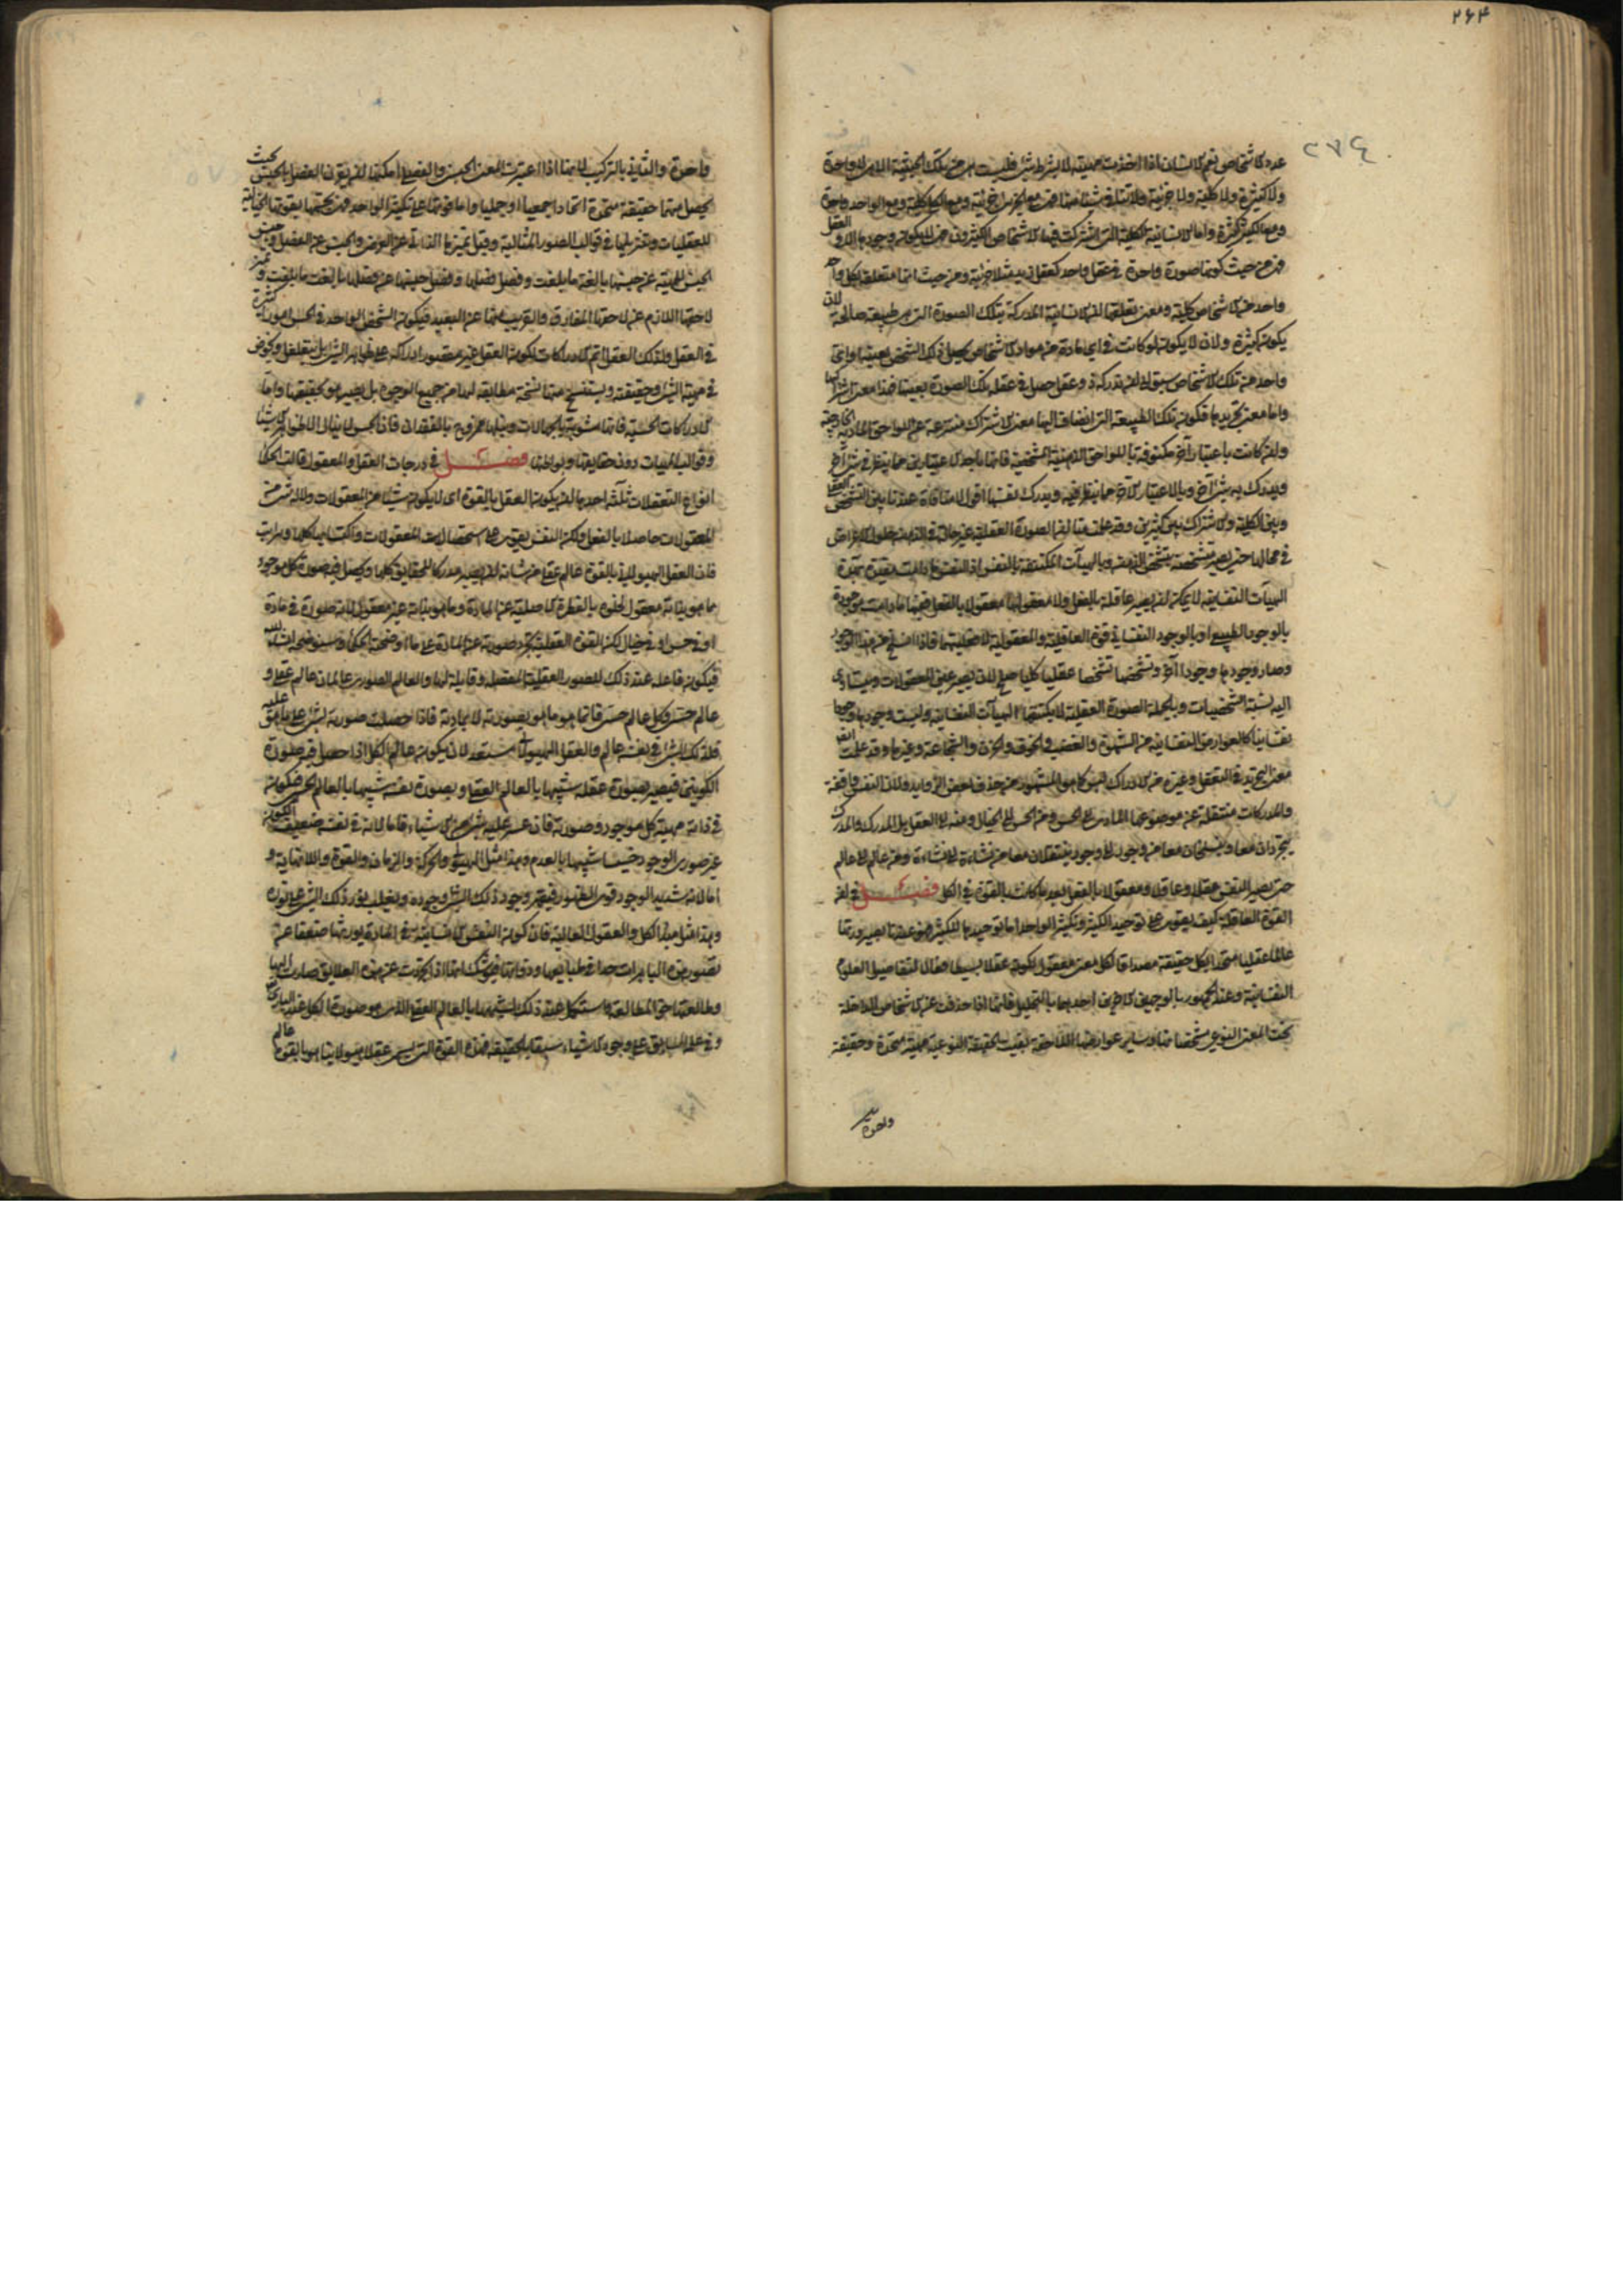 ٢٦٤
٢٧٤
عدد كاشخاص نعم الانسان اذا اخذت مهيته لا بشرط شئ فليست هى من تلك الحيثية الا هى لا واحدة
ولا كثيرة ولا كلية ولا جزئية
ومع الكثير كثرة واما الانسانية الكلية التى اشتركت فيها الاشخاص الكثيرون فهى لا يكون وجودها الا فى العقل
فهى من حيث كونها صورة واحدة فى عقل واحد كعقل زيد مثلا جزئية ومن حيث انها متعلقة بكل واحد
واحد من الاشخاص كلية ومعنى تعلقها ان الانسانية المدركة بتلك الصورة التى هى طبيعة صالحة لان
يكون كثيرة ولان لا يكون لو كانت فى اى مادة من مواد الاشخاص لحصل ذلك الشخص بعينه واى
واحد من تلك الاشخاص سبق الى ان تدركه زيد وعقل حصل فى عقله تلك الصورة بعينها فهذا معنى اشتراكها
واما معنى تجريدها فكون تلك الطبيعة التى انضاف اليها معنى الاشتراك منتزعة عن اللواحق المادية الخارجية
وان كانت باعتبار آخر مكنوفة باللواحق الذهنية المشخصة فانها باحد الاعتبارين مما ينظر فى شئ آخر
ويدرك به شئ آخر وبالاعتبار الآخر مما ينظر فيه ويدرك نفسها اقول لا منافاة عندنا بين التشخص العقلى
وبين الكلية والاشتراك بين كثيرين وقد علمت منا ان الصورة العقلية غير حالة فى الذهن حلول الاعراض
فى محالها حتى يصير متشخصة بتشخص الذهن وبالهيآت المكتنفة بالنفس اذ النفس ما دامت مقيدة بهذه
الهيآت النفسانية لا يمكن ان يصير عاقلة بالفعل ولا معقولها معقولا بالفعل فهى ما دامت موجودة
بالوجود الطبيعى او بالوجود النفسانى
وصار وجودها وجودا آخر وتشخصها تشخصا عقليا كليا صلح لان يصير عين المعقولات ويتساوى
اليه نسبة الشخصيات وبالجملة الصورة العقلية لا يكتنفها الهيآت النفسانية وليست وجودها وجودا
نفسانيا كالعوارض النفسانية من الشهوة والغضب والخوف والحزن والشجاعة وغيرها وقد علمت ايضا
معنى التجريد فى التعقل وغيره من الادراك ليس كما هو المشهور من حذف بعض الزوايد ولا ان النفس واقفة
والمدركات منتقلة عن موضوعها المادى الى الحس ومن الحس الى الخيال ومنه الى العقل بل المدرك والمدرك
يتجردان معا وينسلخان معا من وجود الى وجود وينتقلان معا من نشاءة الى نشاءة ومن عالم الى عالم
حتى يصير النفس عقلا وعاقلا ومعقولا بالفعل بعد ما كانت بالقوة فى الكل فصل فى ان
القوة العاقلة كيف يقوى على توحيد الكثير وتكثير الواحد اما توحيدها للكثير فهو عندنا بصيرورتها
عالما عقليا متحدا بكل حقيقة مصداقا لكل معنى معقول لكونه عقلا بسيطا فعالا لتفاصيل العلوم
النفسانية وعند الجمهور بالوجهين الآخرين احدهما بالتحليل فانها اذا حذفت عن الاشخاص الداخلة
تحت المعنى النوعى مشخصاتها وساير عوارضها اللاحقة بقيت الحقيقة النوعية مهية متحدة وحقيقة
واحدة
واحدة والثانى بالتركيب لانها اذا اعتبرت المعنى الجنسى والفصلى امكنها ان يقرن الفصل بالجنس بحيث
يحصل منهما حقيقة متحدة اتحادا جمعيا او حمليا واما قوتها على تكثير الواحد فهى بتجسمها بقوتها الخيالية
للعقليات وتنزيلها فى قوالب الصور المثالية وقيل بتميزها الذاتى عن العرضى والجنس عن الفصل وجنس
الجنس للمهية عن جنسها بالغة ما بلغت وفصل فصلها وفصل جنسها عن فصلها بالغة ما بلغت وتميز
لاحقها اللازم عن لاحقها المفارق والقريب منها عن البعيد فيكون الشخص الواحد فى الحس امورا كثيرة
فى العقل ولذلك العقل اتم الادراكات لكون العقل غير مقصور ادراكه على ظواهر الشئ بل يتغلغل ويخوض
فى مهية الشئ وحقيقته ويستنسخ منها نسخة مطابقة لها من جميع الوجوه بل يصير هو بحقيقتها واما
الادراكات الحسية فانها مشوبة بالجهالات ونيلها ممزوج بالفقدان فان الحس لا ينال الا ظواهر الاشياء
وقوالب المهيات دون حقايقها وبواطنها فصل فى درجات العقل والمعقول قالت الحكماء
انواع التعقلات ثلثة احدها ان يكون العقل بالقوة اى لا يكون شيئا من المعقولات ولا له شئ من
المعقولات حاصلا بالفعل ولكن النفس يقوى على استحصال المعقولات واكتسابها كلها
فان العقل الهيولانى بالقوة عالم عقلى من شانه ان يصير مدركا للحقايق كلها ويحصل فيه صورة كل موجود
مما هو بذاته معقول لخلوه بالفطرة الاصلية عن المادة ومما هو بذاته غير معقول لانه صورة فى مادة
او فى حس او فى خيال لكن القوة العقلية يجرد صورته عن المادة على ما اوضحه الحكماء وسنوضحه ان شاء الله
فيكون فاعله عند ذلك للصور العقلية المفصلة وقابلة لها والعالم الصورى عالمان عالم عقلى و
عالم حسى وكل عالم حسى فانما هو ما هو بصورته لا بمادته فاذا حصلت صورته لشئ على ما هو عليه
فذلك الشئ فى نفسه عالم والعقل الهيولانى مستعد لان يكون عالم الكل اذا حصل فيه صورة
الكونين فيصير بصورة عقله شبيها بالعالم العقلى وبصورة نفسه شبيها بالعالم الحسى فيكون
فى ذاته مهية كل موجود وصورته فان عسر عليه شئ من الاشياء فاما لانه فى نفسه ضعيف الكون
غير صورى الوجود خسيسا شبيها بالعدم وهذا مثل الهيولى والحركة والزمان والقوة واللانهاية و
اما لانه شديد الوجود قوى الظهور فيقهر وجود ذلك الشئ وجوده ويغلب نور ذلك الشئ على نوره
وهذا مثل مبدا الكل والعقول العالية فان كون النفس الانسانية فى المادة يورثها ضعفا عن
تصور هذه الباهرات جدا فى طبايعها وذواتها فيوشك انها اذا تجردت عن هذه العلايق صارت اليها
وطالعتها حق المطالعة واستكمل عند ذلك تشبهها بالعالم العقلى الذى هو صورة الكل عند البارى
وفى علمه السابق على وجود الاشياء سبقا بالحقيقة فهذه القوة التى تسمى عقلا هيولانيا هو بالقوة عالم